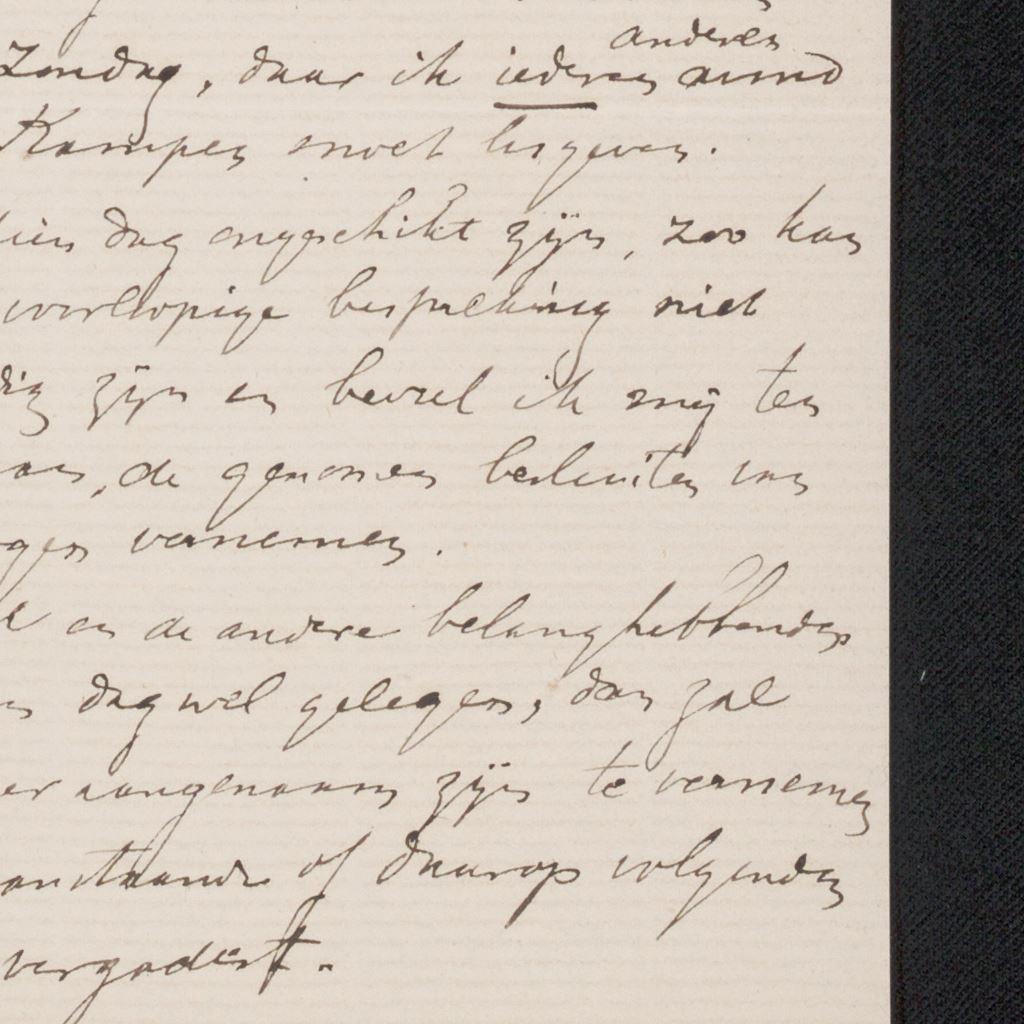 anderen
Zondag, daar ik iederen avond
Kampen moet lesgeven.
dien dag ongeschikt zijn, zoo kan
voorloopige bespreking niet
dig zijn en beveel ik mij ten
aan, de genomen besluiten van
gen vernemen.
en de andere belanghebbenden
dag wel gelegen, dan zal
er aangenaam zijn te vernemen
anstaande of daarop volgenden
vergadert.